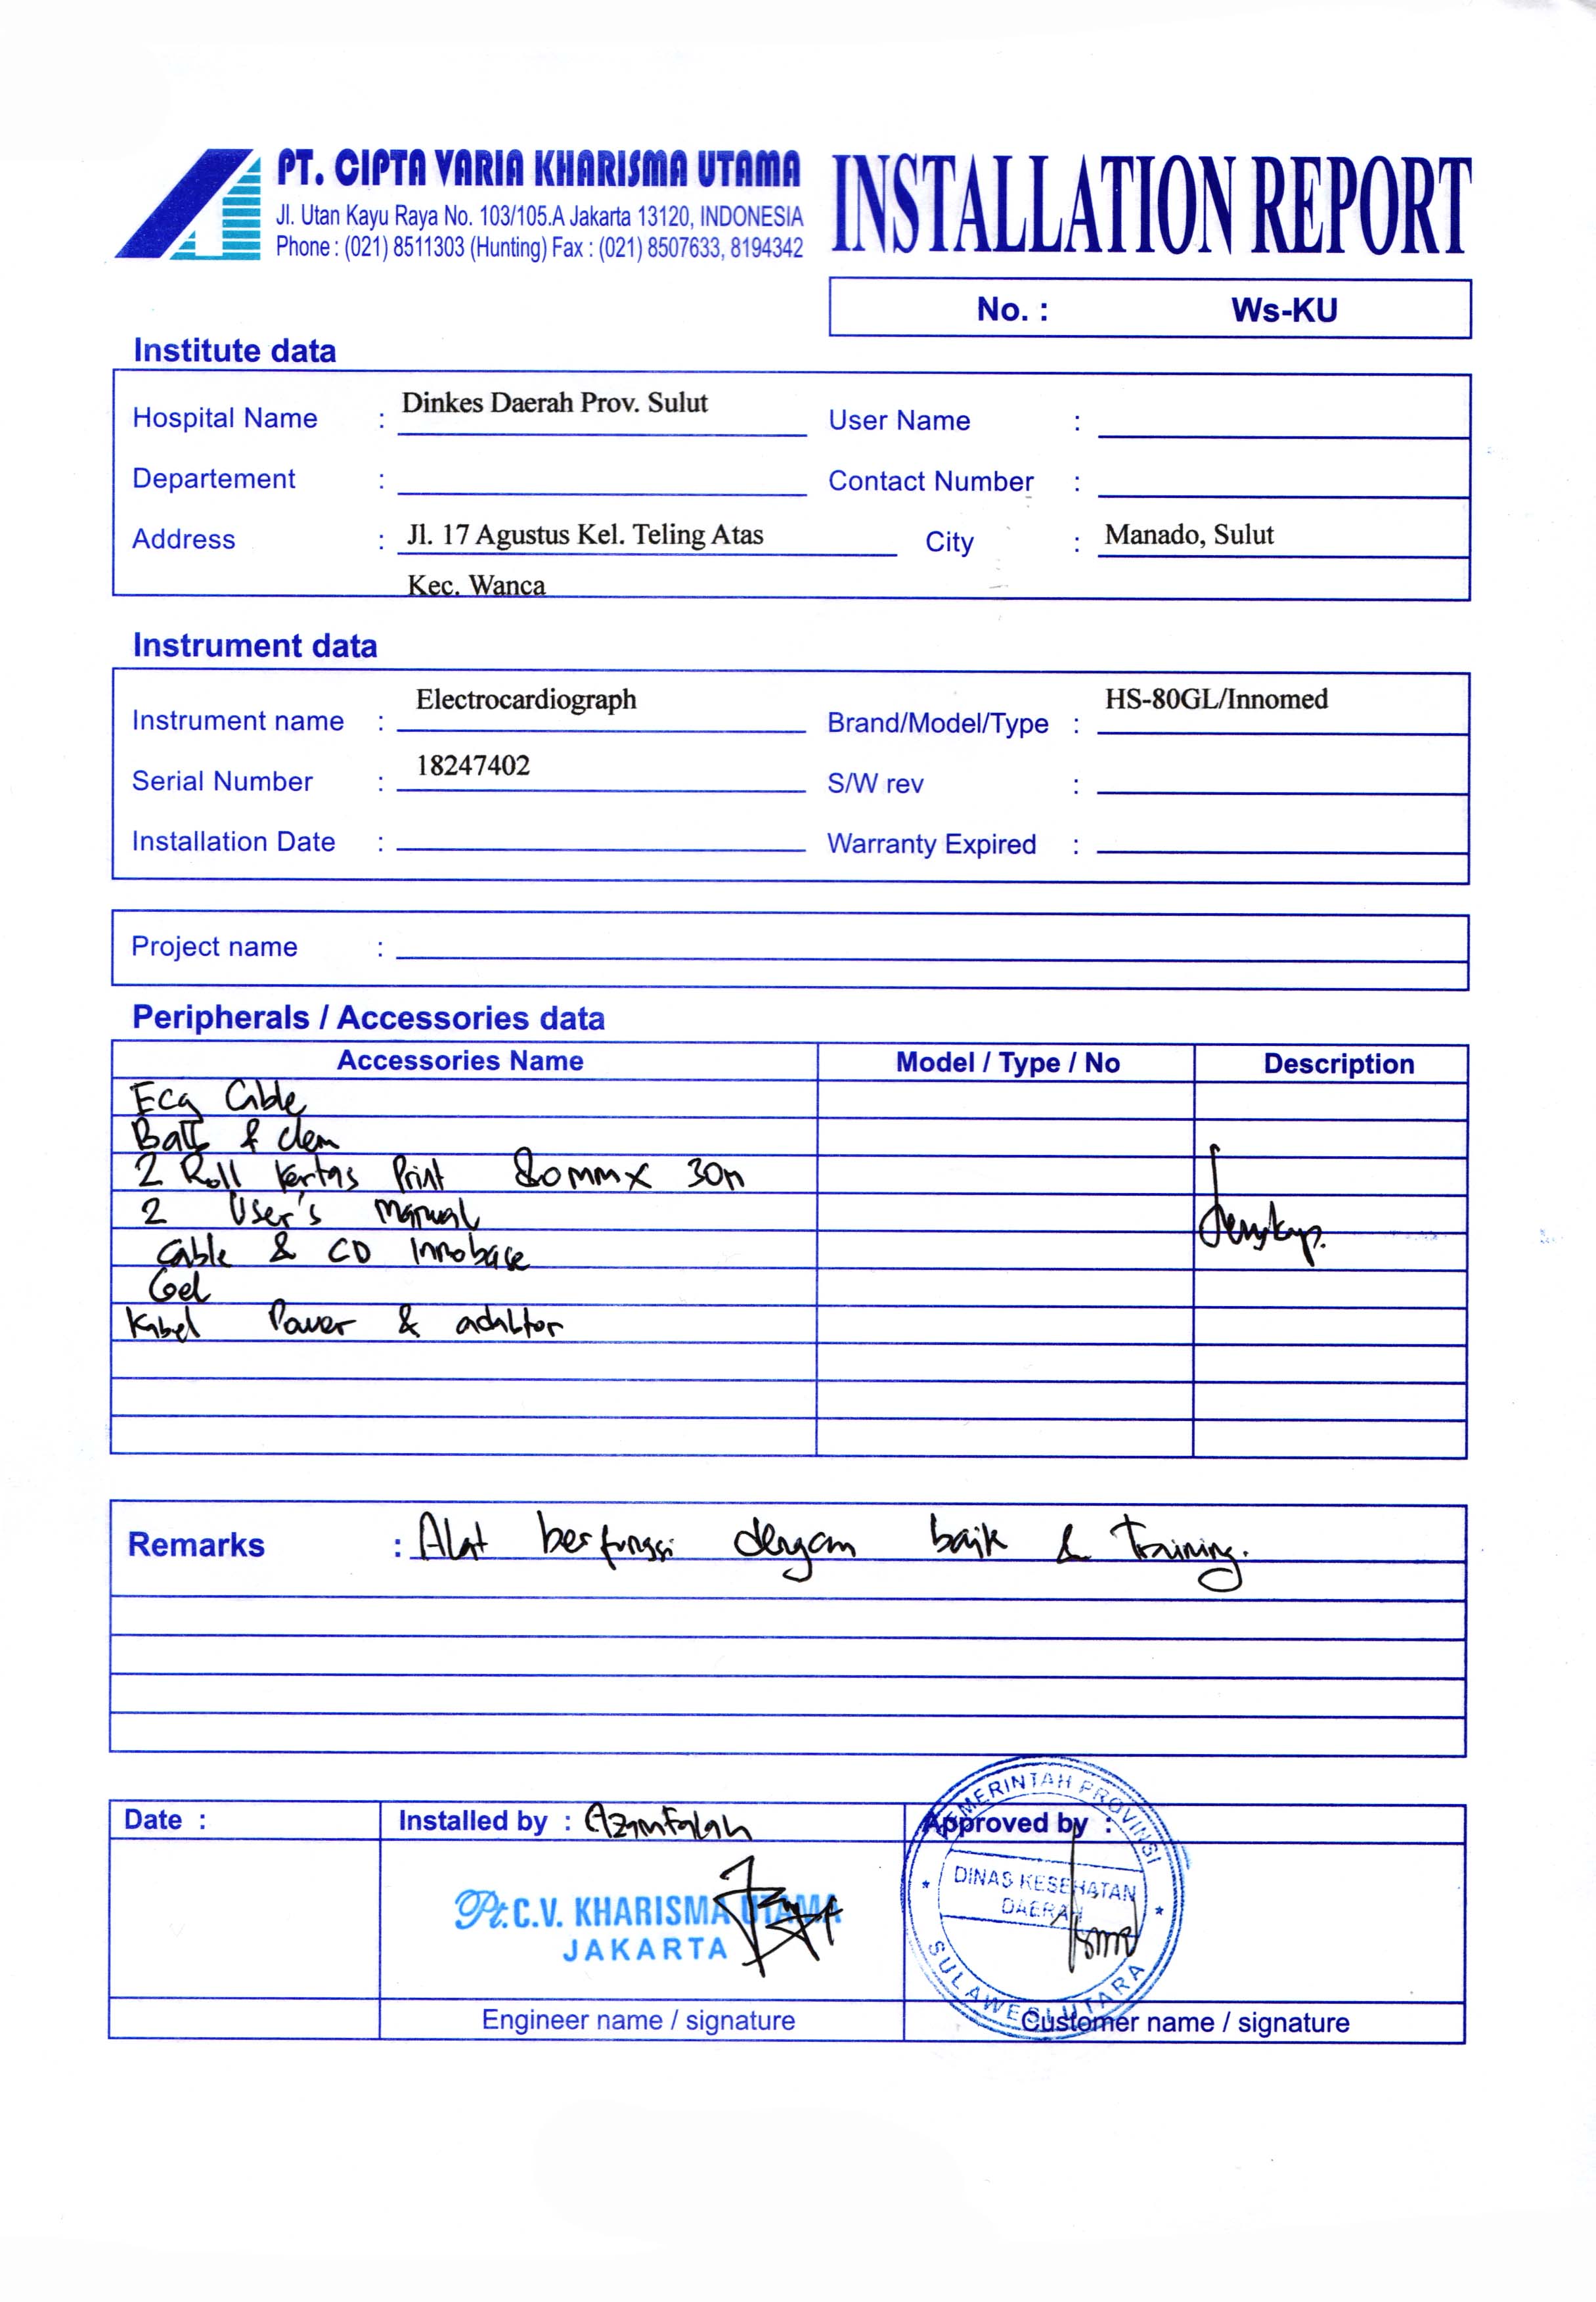 PT. CIPTA VARIA KHARISMA UTAMA
Jl. Utan Kayu Raya No. 103/105.A Jakarta 13120, INDONESIA
Phone : (021) 8511303 (Hunting) Fax : (021) 8507633, 8194342
INSTALLATION REPORT
No. : Ws-KU
Institute data
Hospital Name : Dinkes Daerah Prov. Sulut User Name :
Departement : Contact Number :
Address : Jl. 17 Agustus Kel. Teling Atas City : Manado, Sulut
Kec. Wanca
Instrument data
Instrument name : Electrocardiograph Brand/Model/Type : HS-80GL/Innomed
Serial Number : 18247402 S/W rev :
Installation Date : Warranty Expired :
Project name :
Peripherals / Accessories data
Accessories Name Model / Type / No Description
Ecg Cable
& clem
2 Roll kertas Print 80mm x 30m
2 User's manual
Lengkap.
Cable & CD Innobase
Gel
Kabel Power & adabtor
Remarks : Alat berfungsi dengan baik & Training.
Date : Installed by : Azamfalah Approved by :
PEMERINTAH PROVINSI
DINAS KESEHATAN
DAERAH
SULAWESI UTARA
Pt. C.V. KHARISMA UTAMA
JAKARTA
Engineer name / signature Customer name / signature